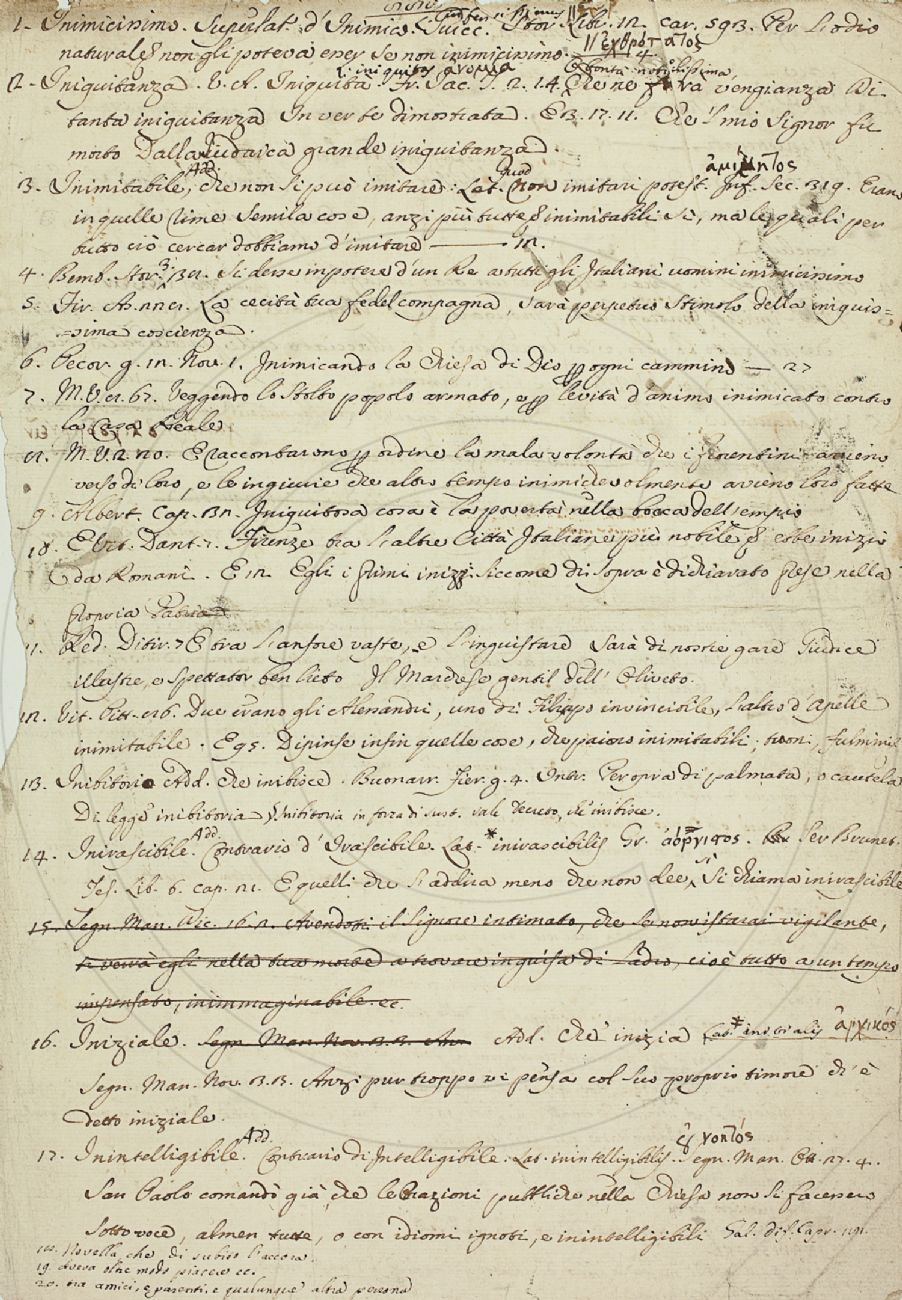 1. Inimicissimo. Superlat. d'Inimico. Guicc. Stor. Lib. 12. car. 593. Per l'odio
naturale non gli poteva esser se non inimicissimo. ἐχθρότατος
2. Iniquitanza. V. A. Iniquità. Fr. Jac. T. 2. 14. Che ne farà vengianza Di
L. iniquitas ἀνομία
tanta iniquitanza In ver te dimostrata. E 3. 17. 11. Che 'l mio Signor fu
morto Dalla Iudaica grande iniquitanza.
3. Inimitabile, Add. che non si può imitare. Lat. Quod non imitari potest. ἀμίμητος Inf. Sec. 319. Erano
in quelle rime semila cose, anzi più tutte inimitabili sì, ma le quali per
tutto ciò cercar dobbiamo d'imitare — 12.
4. Bemb. Stor. 3. Si desse in potere d'un Re a tutti gli Italiani uomini inimicissimo
5. Fir. As. La cecità tua fedel compagna, sarà perpetuo stimolo della iniquis=
=sima coscienza.
6. Pecor. g. 12. Nov. 1. Inimicando la Chiesa di Dio per ogni cammino — 27
7. M. V. 8. 67. Veggendo lo stolto popolo armato, e per levità d'animo inimicato contro
la Casa Reale
8. M. V. 2. 20. E raccontarono per ordine la mala volontà che i fiorentini avieno
verso di loro, e le ingiurie che altro tempo inimichevolmente avieno loro fatte
9. Albert. Cap. 32. Iniquitosa cosa è la povertà nella bocca dell'empio
10. E Vit. Dant. 7. Firenze tra l'altre Città Italiane più nobile ebbe inizio
da Romani. E 12. Egli i primi inizj, siccome di sopra è dichiarato prese nella
propria Patria
11. Red. Ditir. 7 E tra l'anfore vaste, e l'inguistare Sarà di nostre gare Giudice
illustre, e spettator ben lieto Il Marchese gentil dell'Oliveto.
12. Vit. Pitt. 86. Due erano gli Alessandri, uno di Filippo invincibile, l'altro d'Apelle
inimitabile. E 95. Dipinse infin quelle cose, che paiono inimitabili, tuoni, fulmini
13. Inibitorio Add. che inibisce. Buonarr. Fier. g. 4. Intr. Per opra di palmata, o cautela
Di legge inibitoria Inibitoria in forza di sust. vale Decreto, ch'inibisce.
14. Inirascibile. Add. Contrario d'Irascibile. Lat. * inirascibilis Gr. ἀόργητος. Ser Brunet.
Tes. Lib. 6. cap. 21. E quelli che s'addira meno che non dee, si chiama inirascibile
15. Segn. Man. Dic. 16. 2. Avendoti il Signore intimato, che se non istarai vigilante,
ti verrà egli nella tua morte a trovare in guisa di Ladro, cioè tutto a un tempo
impensato, inimmaginabile. ec.
16. Iniziale. Segn. Man. Nov. 13. 3. An Add. Che inizia Lat. * initialis ἀρχικός
Segn. Man. Nov. 13. 3. Anzi pur troppo vi pensa col suo proprio timore ch'è
detto iniziale.
17. Inintelligibile. Add. Contrario di Intelligibile. Lat. inintelligibilis. Segn. Man. 27. 4.
San Paolo comandò già, che le Orazioni pubbliche nella Chiesa non si facessero
sotto voce, almen tutte, o con idiomi ignoti, e inintelligibili Sal. dif. Capr. 191.
18. Novella, che di subito l'accora.
19. Aveva oltre modo piacere ec.
20. tra amici, e parenti, e qualunque altra persona